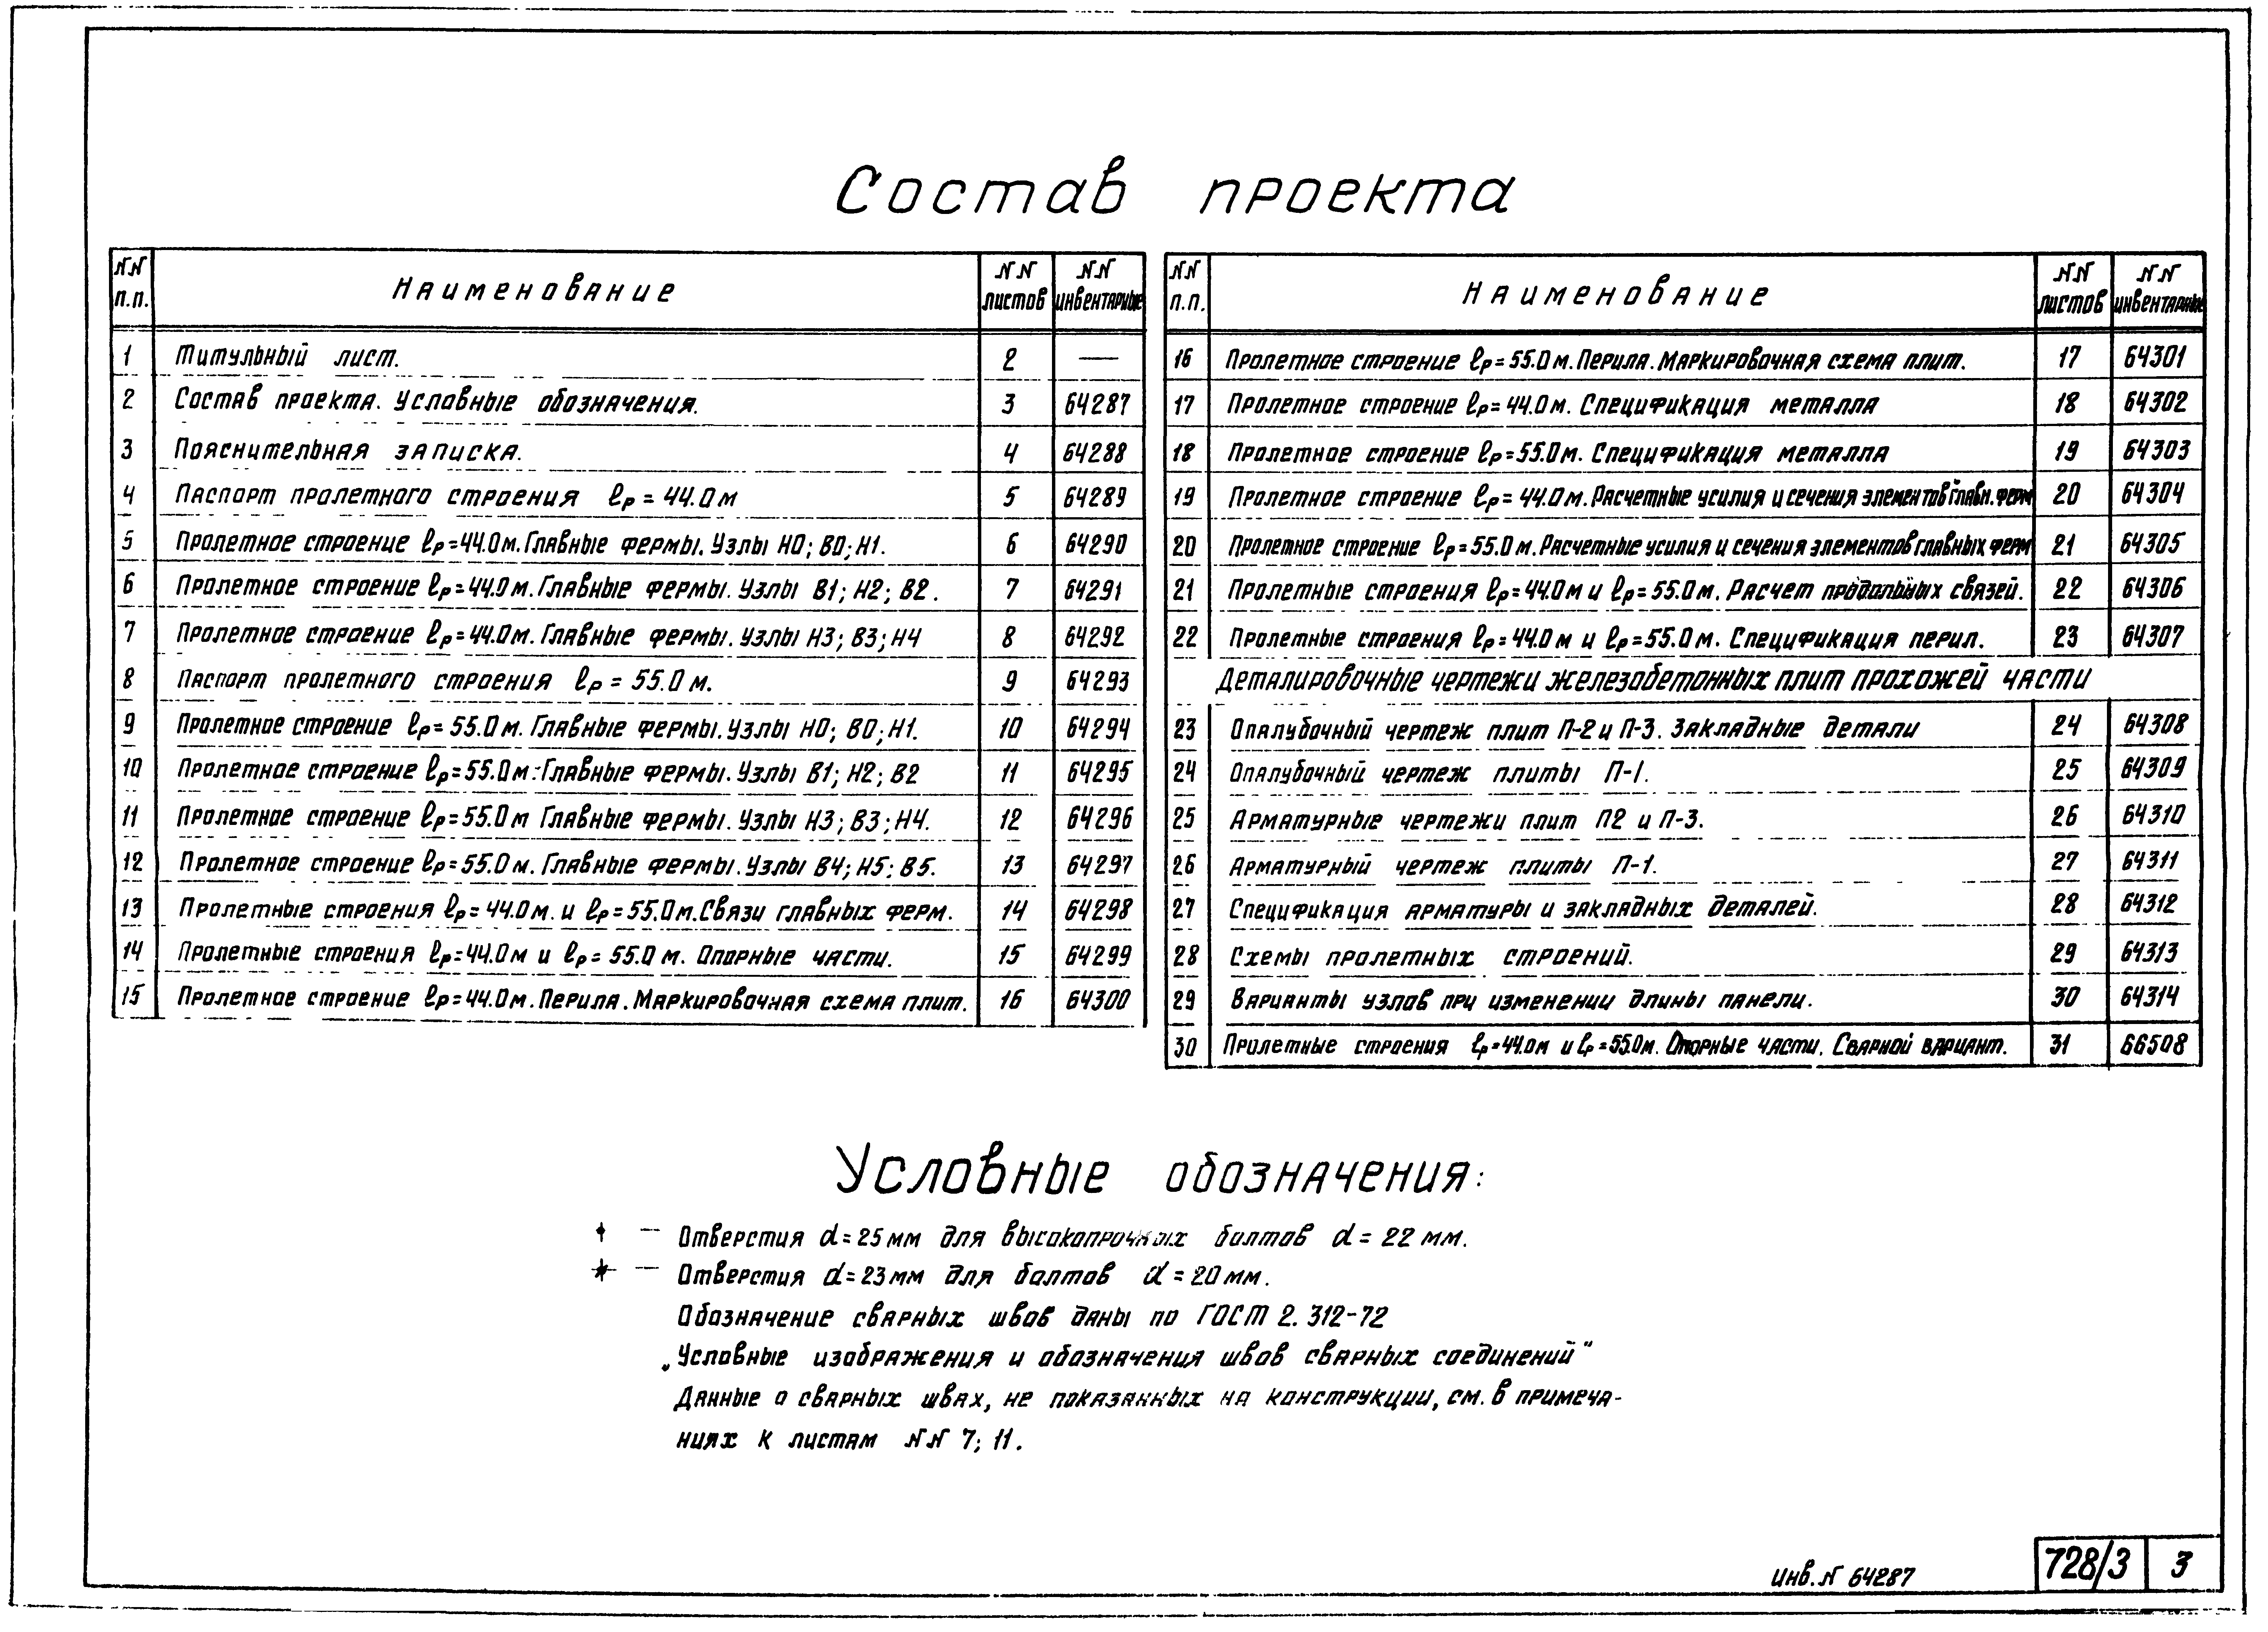 Состав проекта
NN п.п. Наименование NN листов NN инвентарные
1 Титульный лист. 2 —
2 Состав проекта. Условные обозначения. 3 64287
3 Пояснительная записка. 4 64288
4 Паспорт пролетного строения lр = 44.0 м 5 64289
5 Пролетное строение lр = 44.0 м. Главные фермы. Узлы Н0; В0; Н1. 6 64290
6 Пролетное строение lр = 44.0 м. Главные фермы. Узлы В1; Н2; В2. 7 64291
7 Пролетное строение lр = 44.0 м. Главные фермы. Узлы Н3; В3; Н4 8 64292
8 Паспорт пролетного строения lр = 55.0 м. 9 64293
9 Пролетное строение lр = 55.0 м. Главные фермы. Узлы Н0; В0; Н1. 10 64294
10 Пролетное строение lр = 55.0 м. Главные фермы. Узлы В1; Н2; В2 11 64295
11 Пролетное строение lр = 55.0 м Главные фермы. Узлы Н3; В3; Н4. 12 64296
12 Пролетное строение lр = 55.0 м. Главные фермы. Узлы В4; Н5; В5. 13 64297
13 Пролетные строения lр = 44.0 м. и lр = 55.0 м. Связи главных ферм. 14 64298
14 Пролетные строения lр = 44.0 м и lр = 55.0 м. Опорные части. 15 64299
15 Пролетное строение lр = 44.0 м. Перила. Маркировочная схема плит. 16 64300
NN п.п. Наименование NN листов NN инвентарные
16 Пролетное строение lр = 55.0 м. Перила. Маркировочная схема плит. 17 64301
17 Пролетное строение lр = 44.0 м. Спецификация металла 18 64302
18 Пролетное строение lр = 55.0 м. Спецификация металла 19 64303
19 Пролетное строение lр = 44.0 м. Расчетные усилия и сечения элементов главн. ферм 20 64304
20 Пролетное строение lр = 55.0 м. Расчетные усилия и сечения элементов главных ферм 21 64305
21 Пролетные строения lр = 44.0 м и lр = 55.0 м. Расчет продольных связей. 22 64306
22 Пролетные строения lр = 44.0 м и lр = 55.0 м. Спецификация перил. 23 64307
Деталировочные чертежи железобетонных плит прохожей части
23 Опалубочный чертеж плит П-2 и П-3. Закладные детали 24 64308
24 Опалубочный чертеж плиты П-1. 25 64309
25 Арматурные чертежи плит П2 и П-3. 26 64310
26 Арматурный чертеж плиты П-1. 27 64311
27 Спецификация арматуры и закладных деталей. 28 64312
28 Схемы пролетных строений. 29 64313
29 Варианты узлов при изменении длины панели. 30 64314
30 Пролетные строения lр = 44.0 м и lр = 55.0 м. Опорные части. Сварной вариант. 31 66508
Условные обозначения:
— Отверстия d = 25 мм для высокопрочных болтов d = 22 мм.
— Отверстия d = 23 мм для болтов d = 20 мм.
Обозначение сварных швов даны по ГОСТ 2.312-72
„Условные изображения и обозначения швов сварных соединений"
Данные о сварных швах, не показанных на конструкции, см. в примеча-
ниях к листам NN 7; 11.
Инв. N 64287
728/3 3